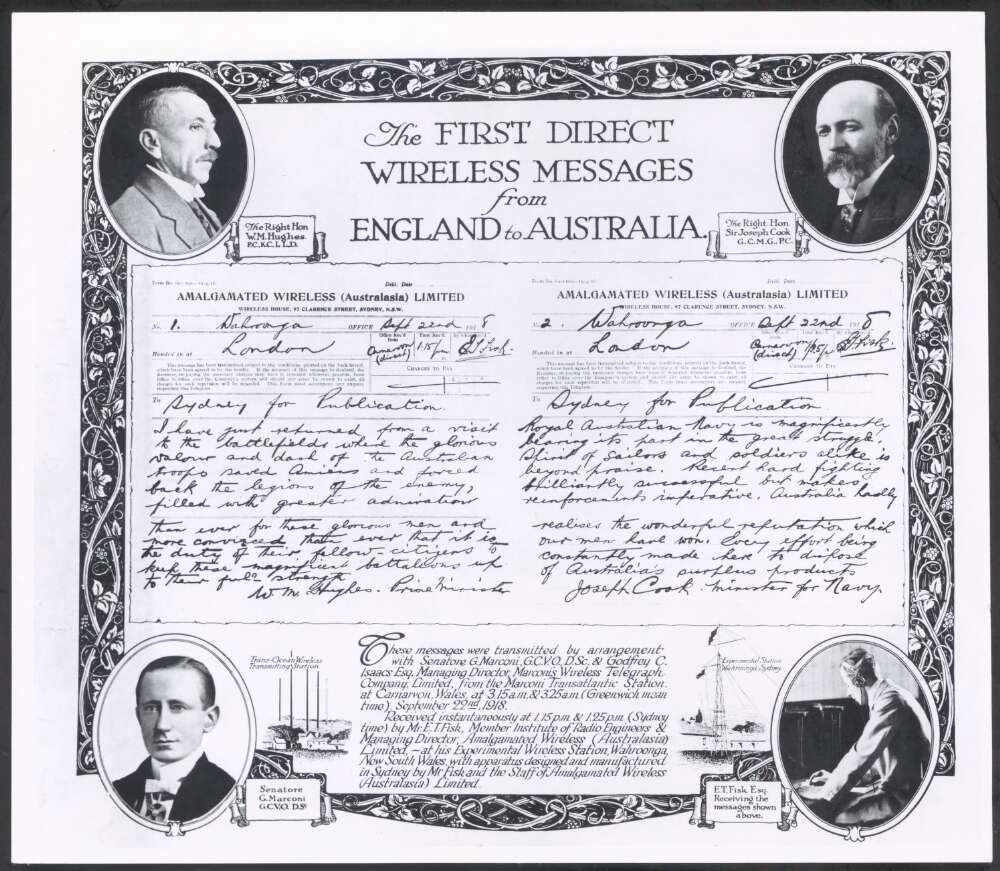 The FIRST DIRECT
WIRELESS MESSAGES
from
ENGLAND to AUSTRALIA.
The Right Hon
W.M. Hughes.
P.C., K.C., L.L.D.
The Right. Hon
Sir Joseph Cook
G.C.M.G., P.C.
AMALGAMATED WIRELESS (Australasia) LIMITED
WIRELESS HOUSE, 97 CLARENCE STREET, SYDNEY, N.S.W.
No. 1. Wahroonga OFFICE Sept 22nd 1918
Handed in at London Carnarvon (direct) 1.15 pm E T Fisk.
CHARGES TO PAY
To Sydney for Publication.
I have just returned from a visit
to the battlefields where the glorious
valour and dash of the Australian
troops saved Amiens and forced
back the legions of the enemy,
filled with greater admiration
than ever for these glorious men and
more convinced than ever that it is
the duty of their fellow-citizens to
keep these magnificent battalions up
to their full strength
W. M. Hughes. Prime Minister
AMALGAMATED WIRELESS (Australasia) LIMITED
WIRELESS HOUSE, 97 CLARENCE STREET, SYDNEY, N.S.W.
No. 2. Wahroonga OFFICE Sept 22nd 1918
Handed in at London Carnarvon (direct) 1.25 p E T Fisk.
CHARGES TO PAY
To Sydney for Publication.
Royal Australian Navy is magnificently
bearing its part in the great struggle.
Spirit of sailors and soldiers alike is
beyond praise. Recent hard fighting
brilliantly successful but makes
reinforcements imperative. Australia hardly
realises the wonderful reputation which
our men have won. Every effort being
constantly made here to dispose
of Australia's surplus products
Joseph Cook. Minister for Navy.
Trans-Ocean Wireless
Transmitting Station
These messages were transmitted by arrangement
with Senatore G. Marconi, G.C.V.O., D.Sc. & Godfrey C.
Isaacs Esq. Managing Director, Marconi's Wireless Telegraph
Company, Limited, from the Marconi Transatlantic Station,
at Carnarvon, Wales, at 3.15 a.m. & 3.25 a.m. (Greenwich mean
time), September 22nd, 1918.
Received instantaneously at 1.15 p.m. & 1.25 p.m. (Sydney
time) by Mr E.T. Fisk, Member Institute of Radio Engineers &
Managing Director, Amalgamated Wireless (Australasia)
Limited – at his Experimental Wireless Station, Wahroonga,
New South Wales, with apparatus designed and manufactured
in Sydney by Mr Fisk and the Staff of Amalgamated Wireless
(Australasia) Limited.
Experimental Station
Wahroonga, Sydney
Senatore
G. Marconi
G.C.V.O. D.Sc
E.T. Fisk, Esq.
Receiving the
messages shown
above.